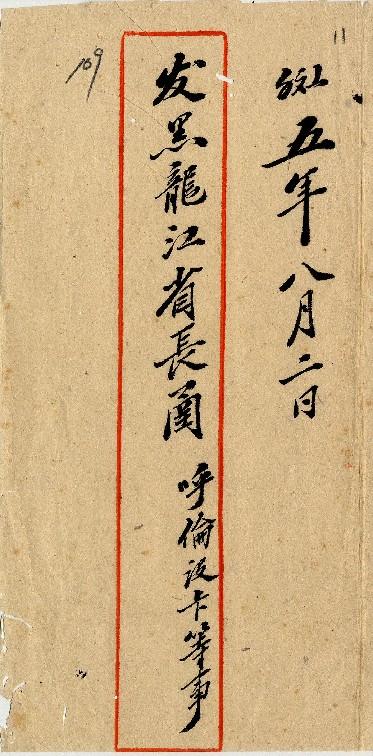 11
五年八月二日
发黑龍江省長函 呼倫设卡等事
109